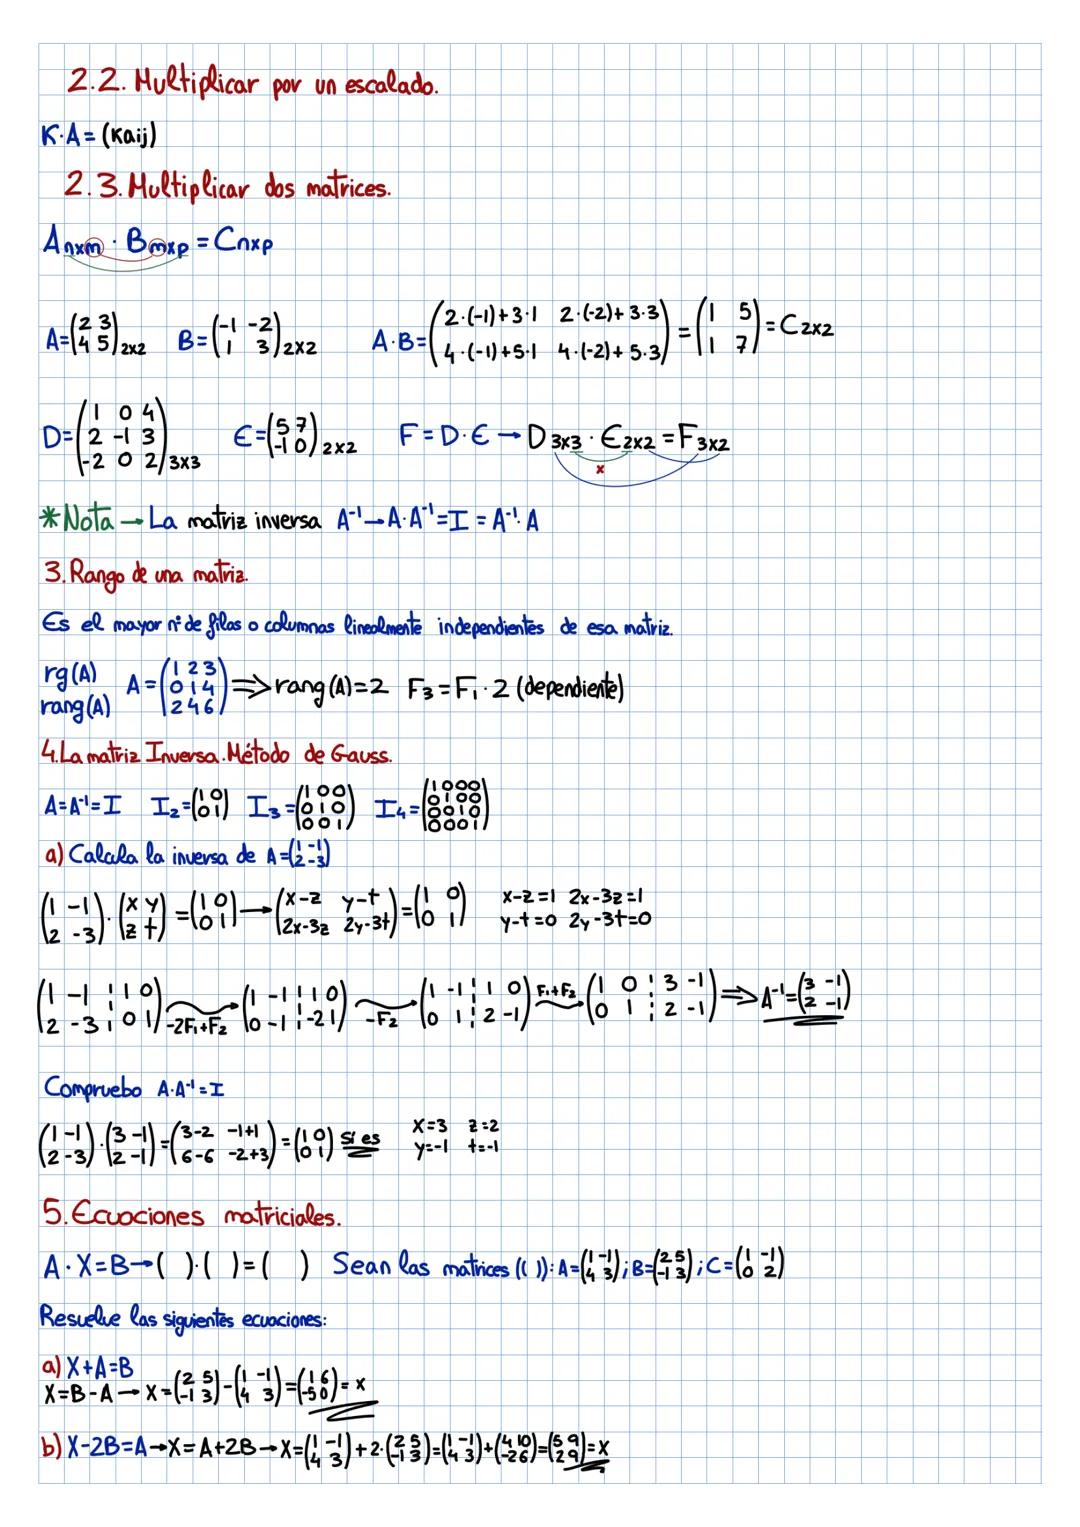 2.2. Multiplicar por un escalado.
K·A = (Kaij)
2.3. Multiplicar dos matrices.
Anxm · Bmxp = Cnxp
A=(2 3 / 4 5)2x2 B=(-1 -2 / 1 3)2x2 A·B=(2·(-1)+3·1 2·(-2)+3·3 / 4·(-1)+5·1 4·(-2)+5·3) = (1 5 / 1 7) = C2x2
D=(1 0 4 / 2 -1 3 / -2 0 2)3x3 E=(5 7 / -1 0)2x2 F=D·E → D3x3 · E2x2 = F3x2
x
*Nota → La matriz inversa A⁻¹ → A·A⁻¹=I=A⁻¹·A
3. Rango de una matriz.
Es el mayor nº de filas o columnas linealmente independientes de esa matriz.
rg(A)
rang(A) A=(1 2 3 / 0 1 4 / 2 4 6) ⇒ rang(A)=2 F₃=F₁·2 (dependiente)
4. La matriz Inversa. Método de Gauss.
A=A⁻¹=I I₂=(1 0 / 0 1) I₃=(1 0 0 / 0 1 0 / 0 0 1) I₄=(1 0 0 0 / 0 1 0 0 / 0 0 1 0 / 0 0 0 1)
a) Calcula la inversa de A=(1 -1 / 2 -3)
(1 -1 / 2 -3)·(x y / z t)=(1 0 / 0 1) → (x-z y-t / 2x-3z 2y-3t)=(1 0 / 0 1) x-z=1 2x-3z=1
y-t=0 2y-3t=0
(1 -1 ¦ 1 0 / 2 -3 ¦ 0 1) -2F₁+F₂ (1 -1 ¦ 1 0 / 0 -1 ¦ -2 1) -F₂ (1 -1 ¦ 1 0 / 0 1 ¦ 2 -1) F₁+F₂ (1 0 ¦ 3 -1 / 0 1 ¦ 2 -1) ⇒ A⁻¹=(3 -1 / 2 -1)
Compruebo A·A⁻¹=I
(1 -1 / 2 -3)·(3 -1 / 2 -1)=(3-2 -1+1 / 6-6 -2+3)=(1 0 / 0 1) Sí es x=3 z=2
y=-1 t=-1
5. Ecuaciones matriciales.
A·X=B → ( )·( )=( ) Sean las matrices (( )): A=(1 -1 / 4 3); B=(2 5 / -1 3); C=(1 -1 / 0 2)
Resuelve las siguientes ecuaciones:
a) X+A=B
X=B-A → X=(2 5 / -1 3)-(1 -1 / 4 3)=(1 6 / -5 0)=x
b) X-2B=A → X=A+2B → X=(1 -1 / 4 3)+2·(2 5 / -1 3)=(1 -1 / 4 3)+(4 10 / -2 6)=(5 9 / 2 9)=x